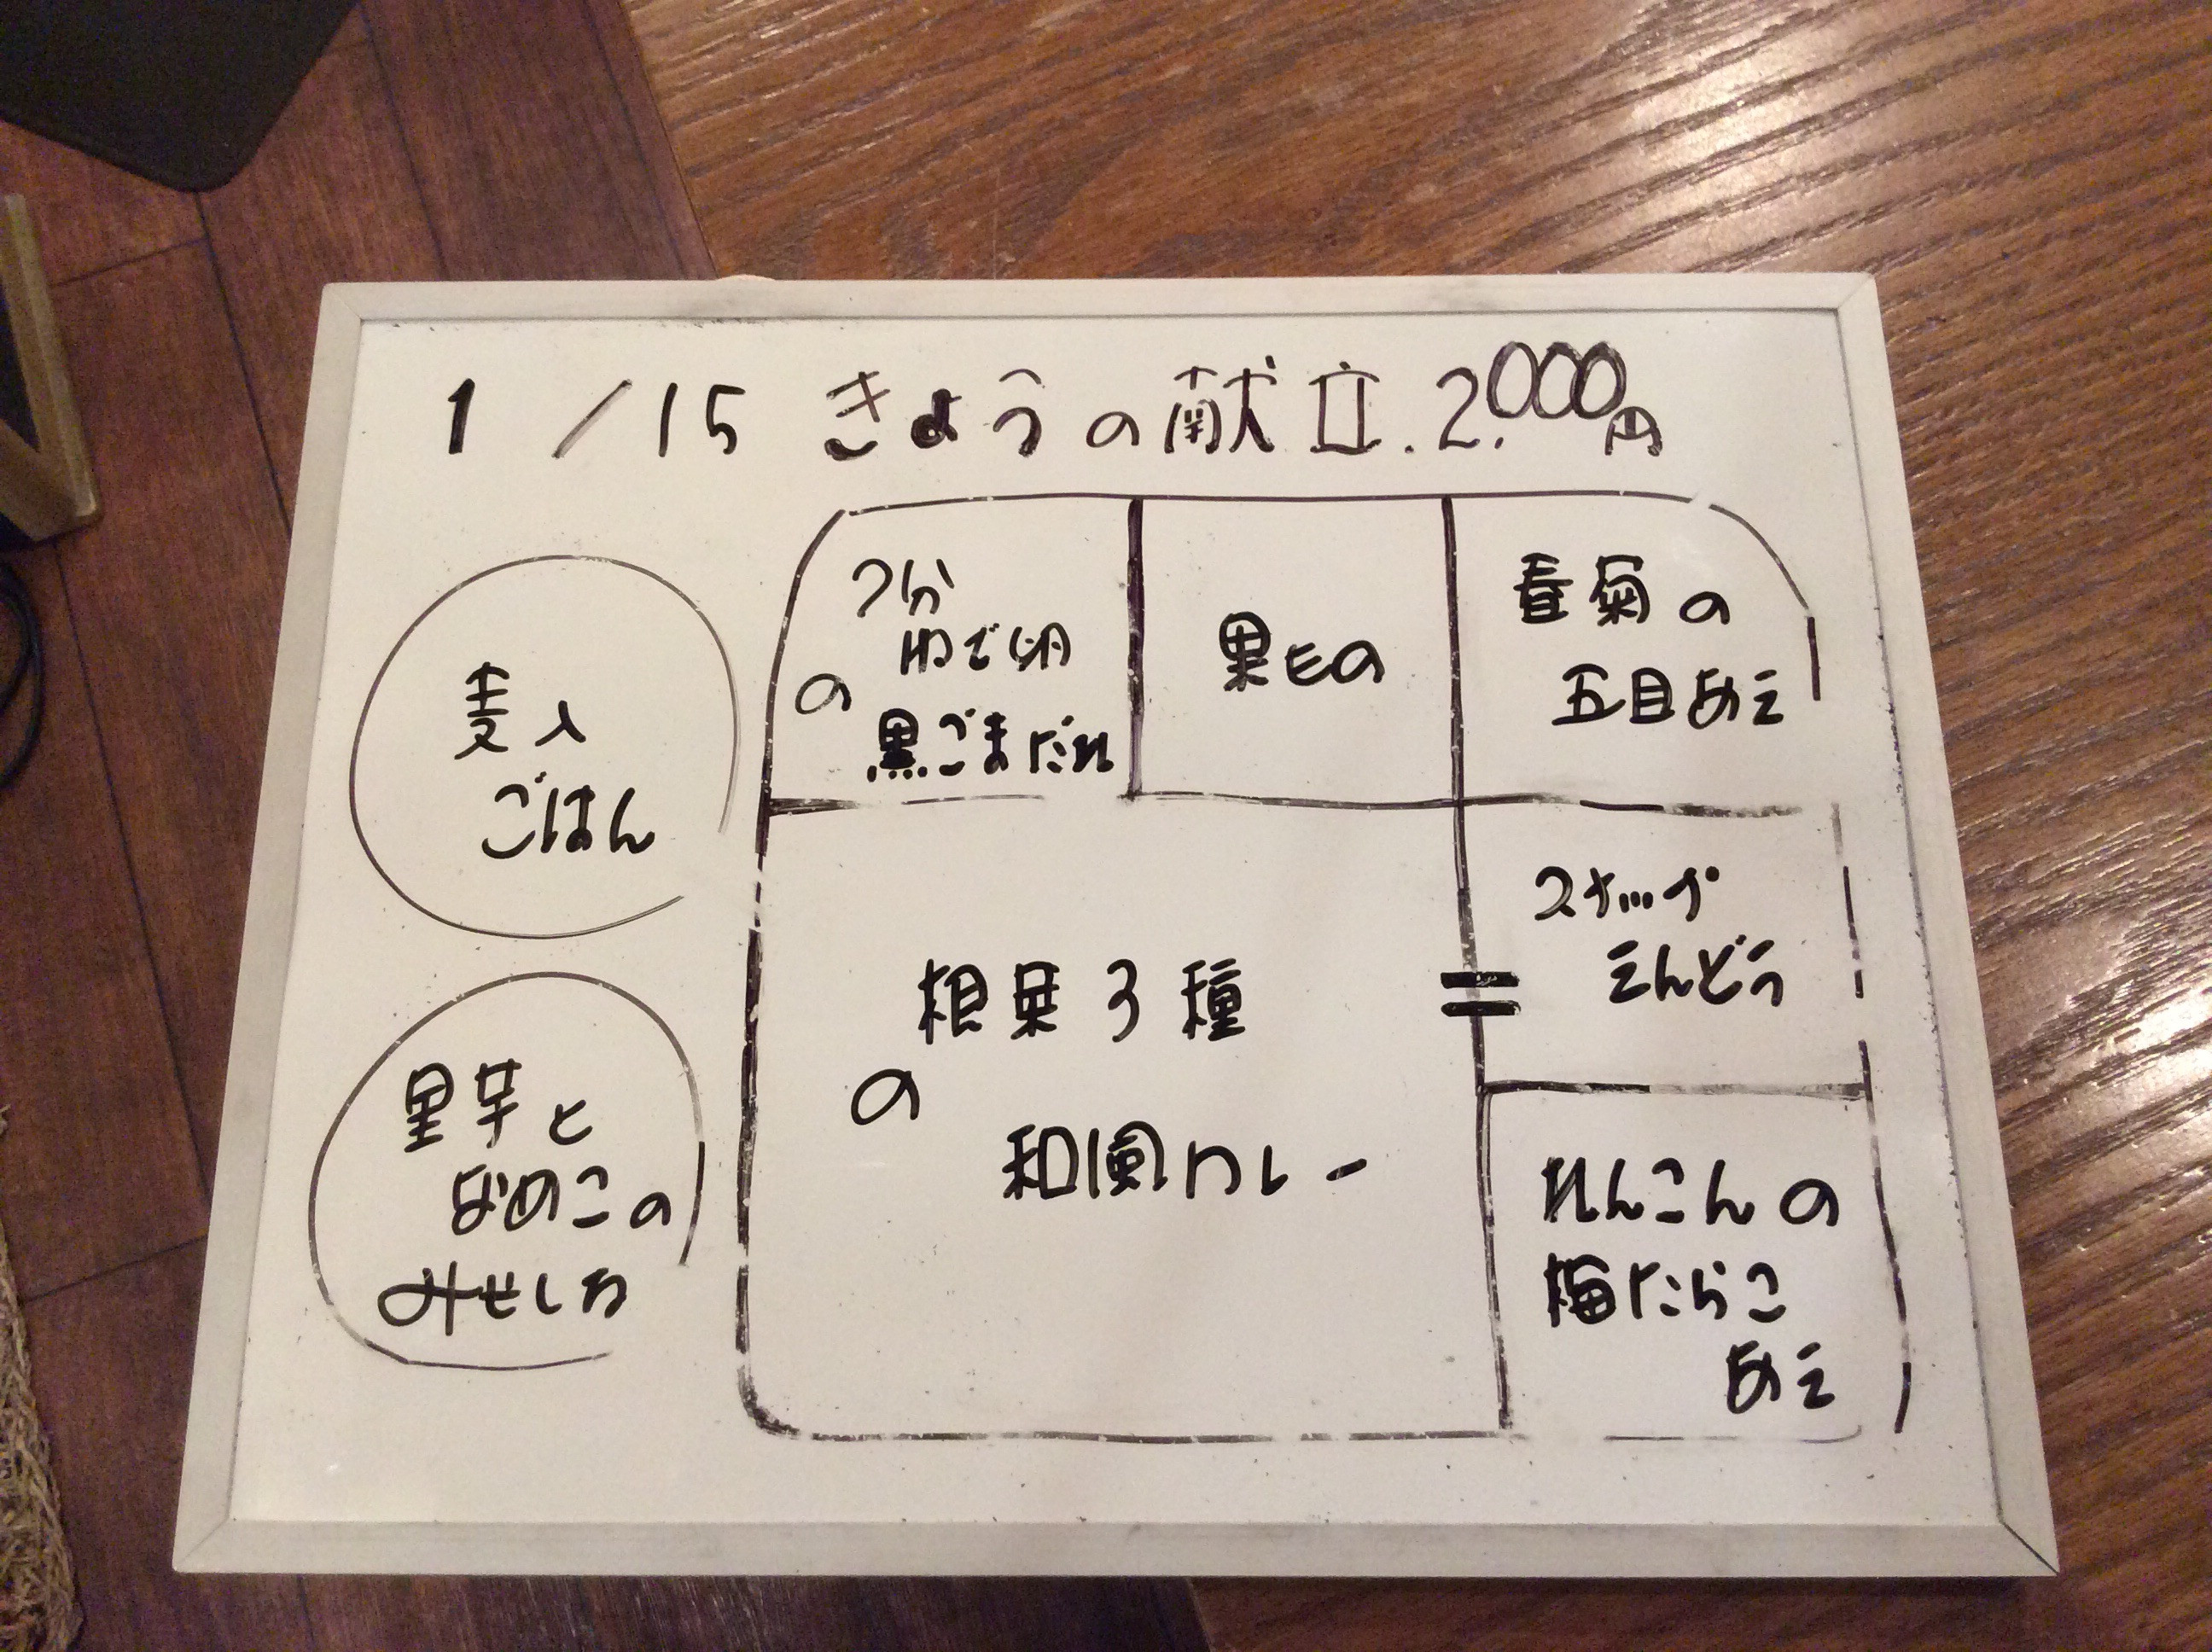 1/15 きょうの献立.2,000円
麦入
ごはん
里芋と
なめこの
みそしる
7分
ゆで卵
の
黒ごまだれ
果もの
春菊の
五目あえ
根菜3種
の
和風カレー
スナップ
えんどう
れんこんの
梅たらこ
あえ